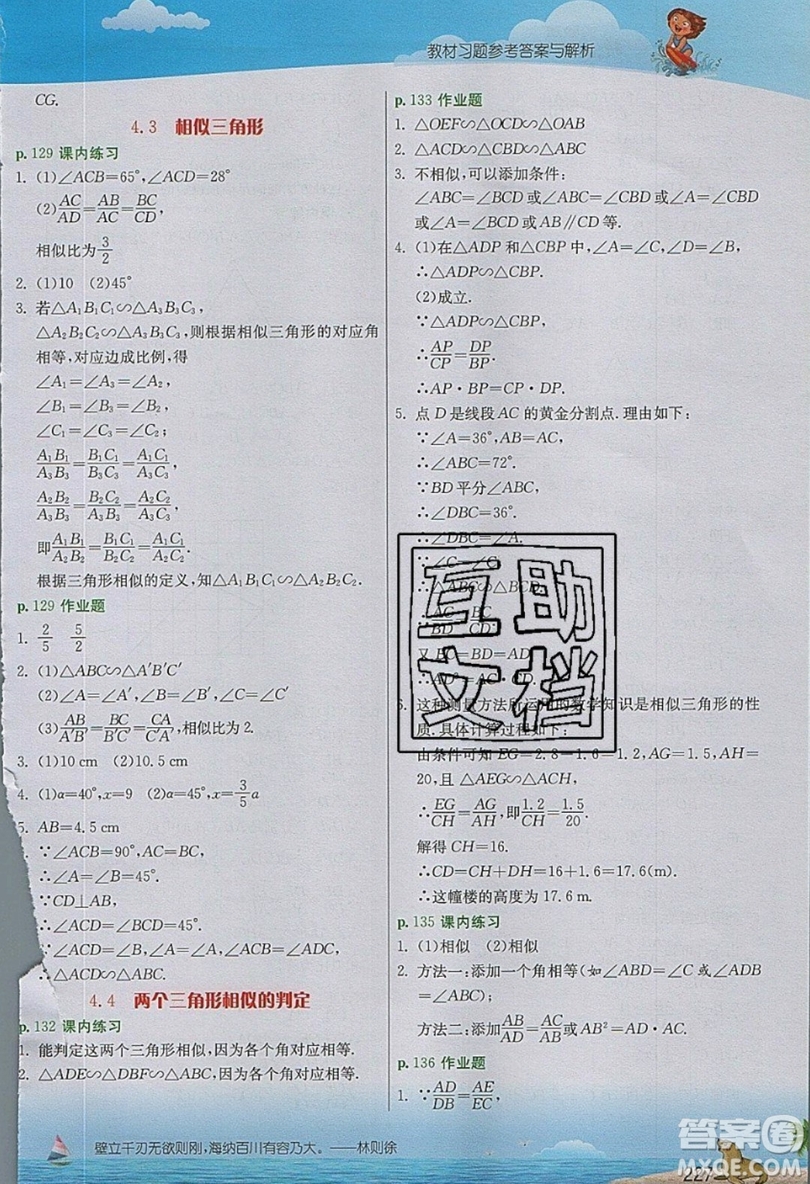 教材习题参考答案与解析
CG.
4.3 相似三角形
p.129 课内练习
1. (1)∠ACB=65°,∠ACD=28°
(2)AC/AD=AB/AC=BC/CD,
相似比为3/2
2. (1)10 (2)45°
3. 若△A₁B₁C₁∽△A₃B₃C₃,
△A₂B₂C₂∽△A₃B₃C₃,则根据相似三角形的对应角
相等,对应边成比例,得
∠A₁=∠A₃=∠A₂,
∠B₁=∠B₃=∠B₂,
∠C₁=∠C₃=∠C₂;
A₁B₁/A₃B₃=B₁C₁/B₃C₃=A₁C₁/A₃C₃,
A₂B₂/A₃B₃=B₂C₂/B₃C₃=A₂C₂/A₃C₃,
即A₁B₁/A₂B₂=B₁C₁/B₂C₂=A₁C₁/A₂C₂.
根据三角形相似的定义,知△A₁B₁C₁∽△A₂B₂C₂.
p.129 作业题
1. 2/5 5/2
2. (1)△ABC∽△A′B′C′
(2)∠A=∠A′,∠B=∠B′,∠C=∠C′
(3)AB/A′B′=BC/B′C′=CA/C′A′,相似比为2.
3. (1)10 cm (2)10.5 cm
4. (1)α=40°,x=9 (2)α=45°,x=3/5a
5. AB=4.5 cm
∵∠ACB=90°,AC=BC,
∴∠A=∠B=45°.
∵CD⊥AB,
∴∠ACD=∠BCD=45°.
∴∠ACD=∠B,∠A=∠A,∠ACB=∠ADC,
∴△ACD∽△ABC.
4.4 两个三角形相似的判定
p.132 课内练习
1. 能判定这两个三角形相似,因为各个角对应相等.
2. △ADE∽△DBF∽△ABC,因为各个角对应相等.
p.133 作业题
1. △OEF∽△OCD∽△OAB
2. △ACD∽△CBD∽△ABC
3. 不相似,可以添加条件:
∠ABC=∠BCD或∠ABC=∠CBD或∠A=∠CBD
或∠A=∠BCD或AB∥CD等.
4. (1)在△ADP和△CBP中,∠A=∠C,∠D=∠B,
∴△ADP∽△CBP.
(2)成立.
∵△ADP∽△CBP,
∴AP/CP=DP/BP.
∴AP·BP=CP·DP.
5. 点D是线段AC的黄金分割点.理由如下:
∵∠A=36°,AB=AC,
∴∠ABC=72°.
∵BD平分∠ABC,
∴∠DBC=36°.
∴∠DBC=∠A.
∵∠C=∠C
∴△ABC∽△BCD.
∴AC/BD=BC/CD
又BC=BD=AD
∴AD²=AC·DC
互助
文档
6. 这种测量方法所运用的数学知识是相似三角形的性
质.具体计算过程如下:
由条件可知EG=2.8-1.6=1.2,AG=1.5,AH=
20,且△AEG∽△ACH,
∴EG/CH=AG/AH,即1.2/CH=1.5/20.
解得CH=16.
∴CD=CH+DH=16+1.6=17.6(m).
∴这幢楼的高度为17.6 m.
p.135 课内练习
1. (1)相似 (2)相似
2. 方法一:添加一个角相等(如∠ABD=∠C或∠ADB
=∠ABC).
方法二:添加AB/AD=AC/AB或AB²=AD·AC.
p.136 作业题
1. ∵AD/DB=AE/EC,
壁立千刃无欲则刚,海纳百川有容乃大。——林则徐
227
答案圈
MXQE.COM